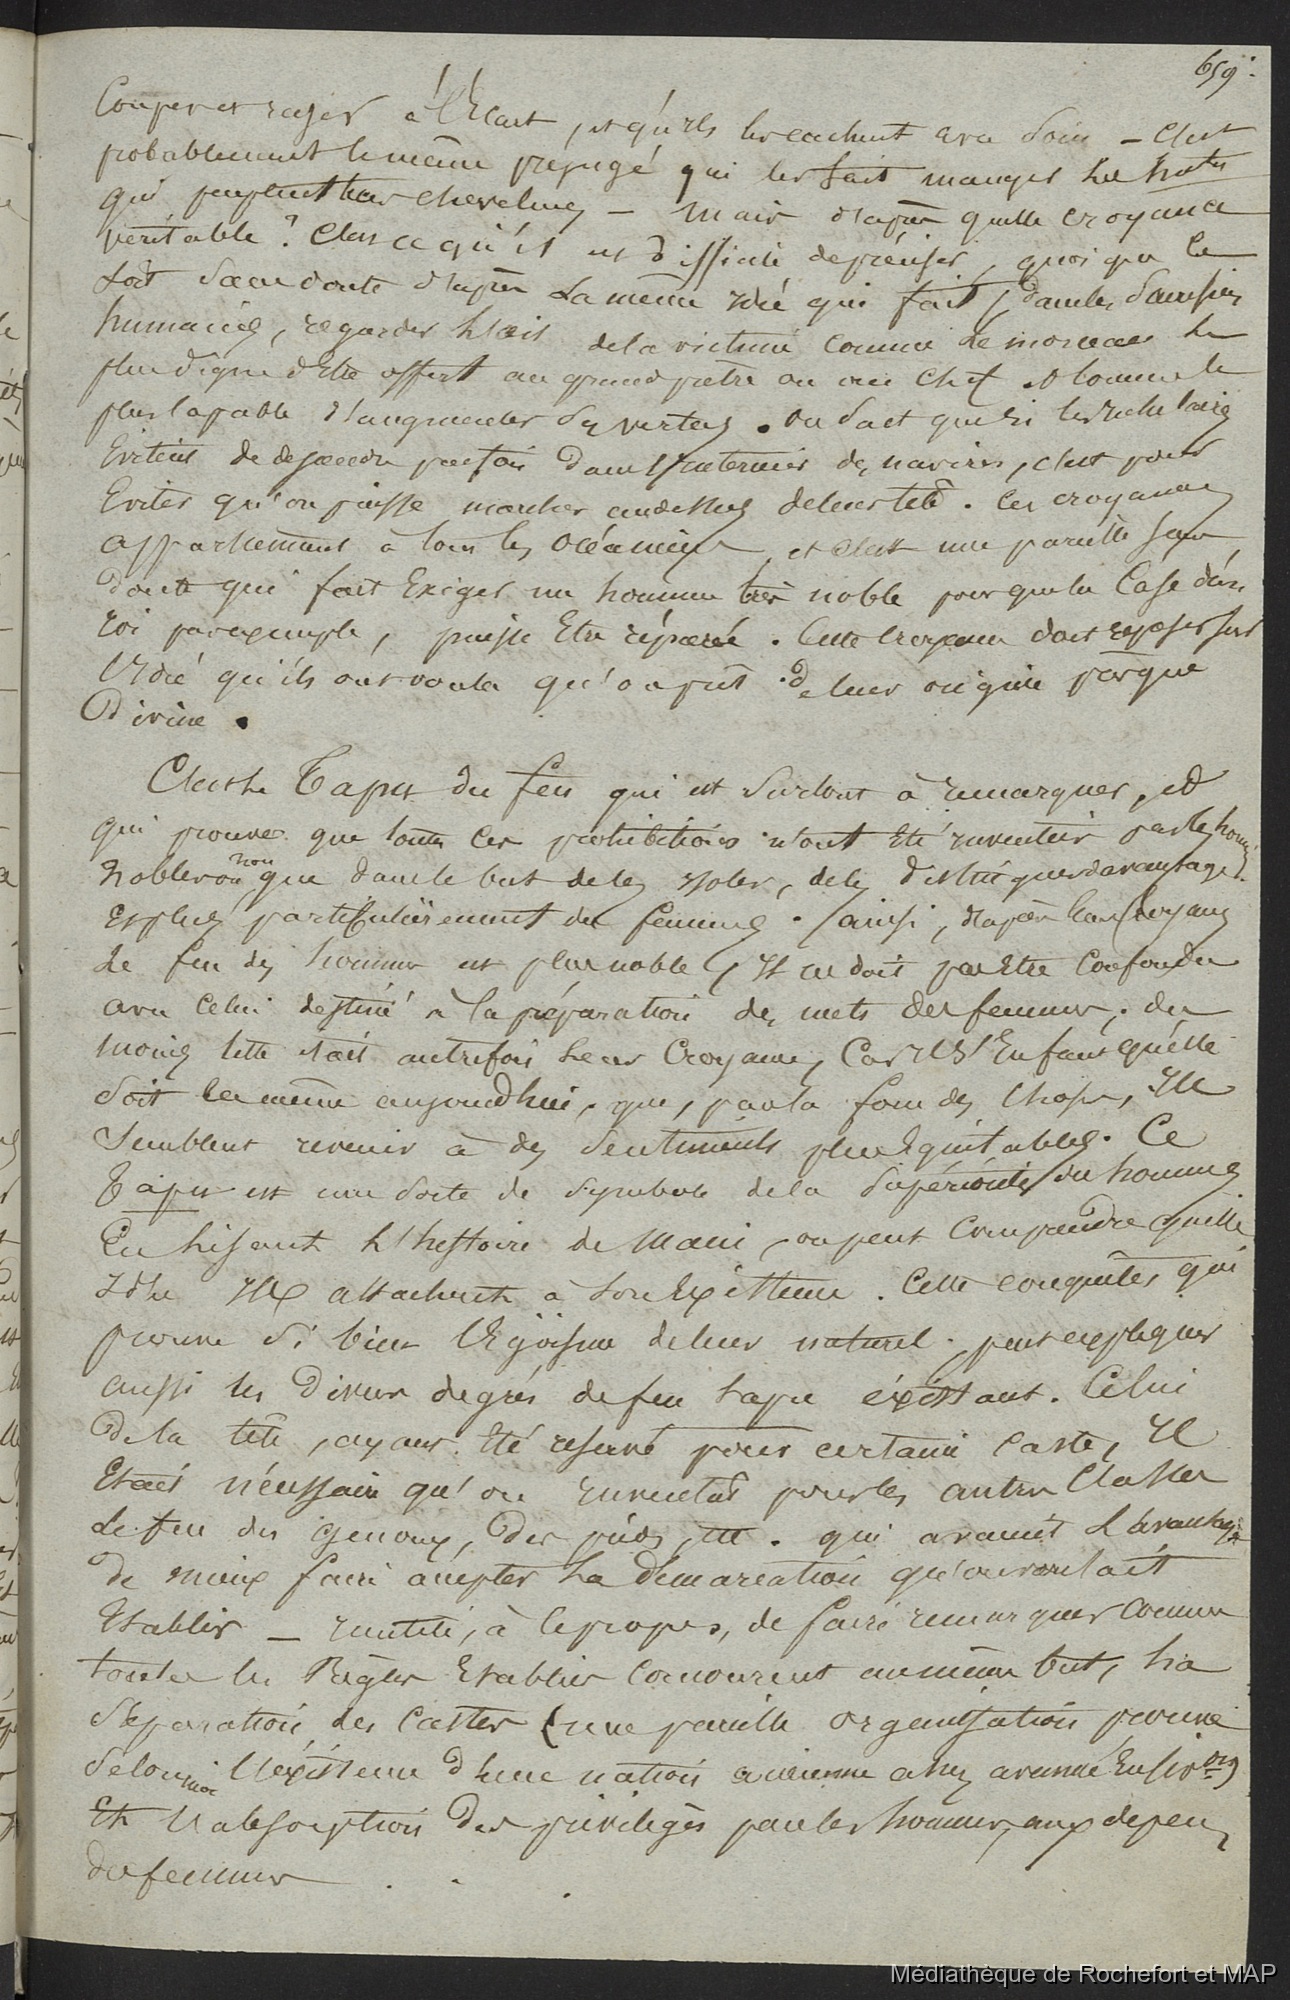 659.
Couper et raser à l'Ecart, et qu'ils les cachent avec soin - C'est
probablement le même préjugé qui les fait manger les hôtes
qui peuplent leur chevelure - Mais d'après quelle croyance
véritable ? C'est ce qu'il est difficile de préciser, quoique ce
soit sans doute d'après la même idée qui fait, dans les sacrifices
humains, regarder l'oeil de la victime comme le morceau le
plus digne d'Etre offert au grand prêtre ou au chef et comme le
plus capable d'augmenter ses vertus. On sait que si les
Evitent de descendre parfois dans l'intérieur des navires, c'est pour
Eviter qu'on puisse marcher au dessus de leur tête. Ces croyances
appartiennent à tous les océaniens, et c'est une pareille sans
doute qui fait Exiger un homme très noble pour que la Case d'un
roi par exemple, puisse Etre réparée. Cette croyance doit reposer sur
l'Idée qu'ils ont voulu qu'on prît de leur origine presque
Divine.
C'est le Tapu du feu qui est surtout à remarquer, et
qui prouve que toutes ces prohibitions n'ont Eté inventées par les hommes
nobles ou non que dans le but de les isoler, de les distinguer davantage
Et plus particulièrement des femmes. ainsi, d'après leurs croyances
Le feu des hommes est plus noble, Il ne doit pas Etre Confondu
avec celui destiné à la préparation des mets des femmes, du
moins telle était autrefois leur Croyance, Car Il s'En faut qu'elle
soit la même aujourd'hui, que, par la force des choses, Ils
semblent revenir à des sentiments plus Equitables. Ce
Tapu est une sorte de symbole de la supériorité des hommes
En lisant l'histoire de Maui, on peut comprendre quelle
Idée Ils attachent à son Existence. Cette conquête, qui
prouve si bien l'Egoïsme de leur naturel, peut expliquer
aussi les divers degrés de feu tapu éxistant. Celui
De la tête, ayant Eté réservé pour certaine caste, Il
Etait nécessaire qu'on inventât pour les autres Classes
Le feu des genoux, des pieds, etc. qui avaient l'avantage
de mieux faire accepter la démarcation qu'on voulait
Etablir - Inutile, à ce propos, de faire remarquer comme
toutes les Règles Etablies concourent au même but, la
séparation des Castes (une pareille organisation prouve
selon moi l'éxistence d'une nation ancienne assez avancée En civ.on)
Et l'absorption des privilèges par les hommes, aux dépens
des femmes . . .
Médiathèque de Rochefort et MAP